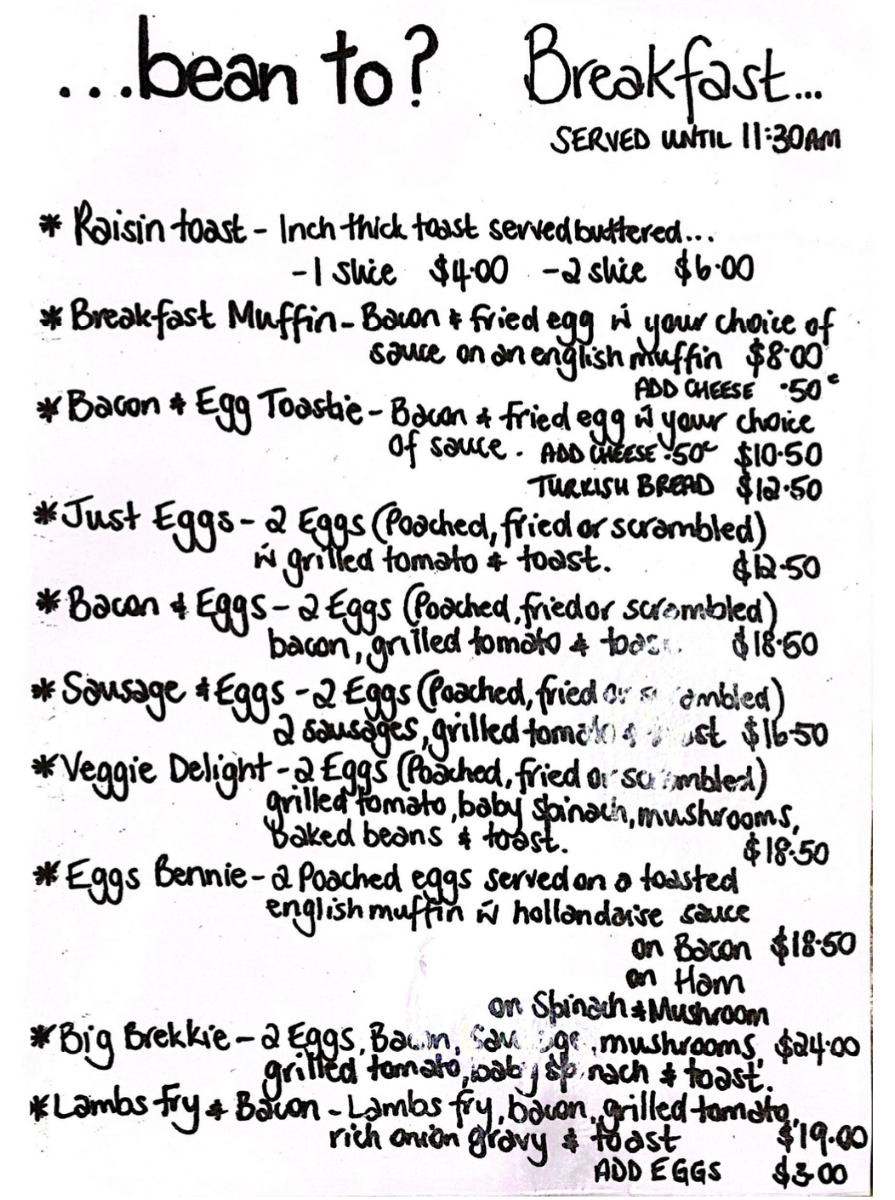 ...bean to? Breakfast...
SERVED UNTIL 11:30AM
* Raisin toast - Inch thick toast served buttered...
- 1 slice $4.00 - 2 slice $6.00
* Breakfast Muffin - Bacon & fried egg w your choice of
sauce on an english muffin $8.00
ADD CHEESE .50c
* Bacon & Egg Toastie - Bacon & fried egg w your choice
of sauce. ADD CHEESE .50c $10.50
TURKISH BREAD $12.50
* Just Eggs - 2 Eggs (Poached, fried or scrambled)
w grilled tomato & toast. $12.50
* Bacon & Eggs - 2 Eggs (Poached, fried or scrambled)
bacon, grilled tomato & toast. $18.50
* Sausage & Eggs - 2 Eggs (Poached, fried or scrambled)
2 sausages, grilled tomato & toast $16.50
* Veggie Delight - 2 Eggs (Poached, fried or scrambled)
grilled tomato, baby spinach, mushrooms,
baked beans & toast. $18.50
* Eggs Bennie - 2 Poached eggs served on a toasted
english muffin w hollandaise sauce
on Bacon $18.50
on Ham
on Spinach & Mushroom
* Big Brekkie - 2 Eggs, Bacon, Sausage, mushrooms, $24.00
grilled tomato, baby spinach & toast.
* Lambs fry & Bacon - Lambs fry, bacon, grilled tomato,
rich onion gravy & toast $19.00
ADD EGGS $3.00